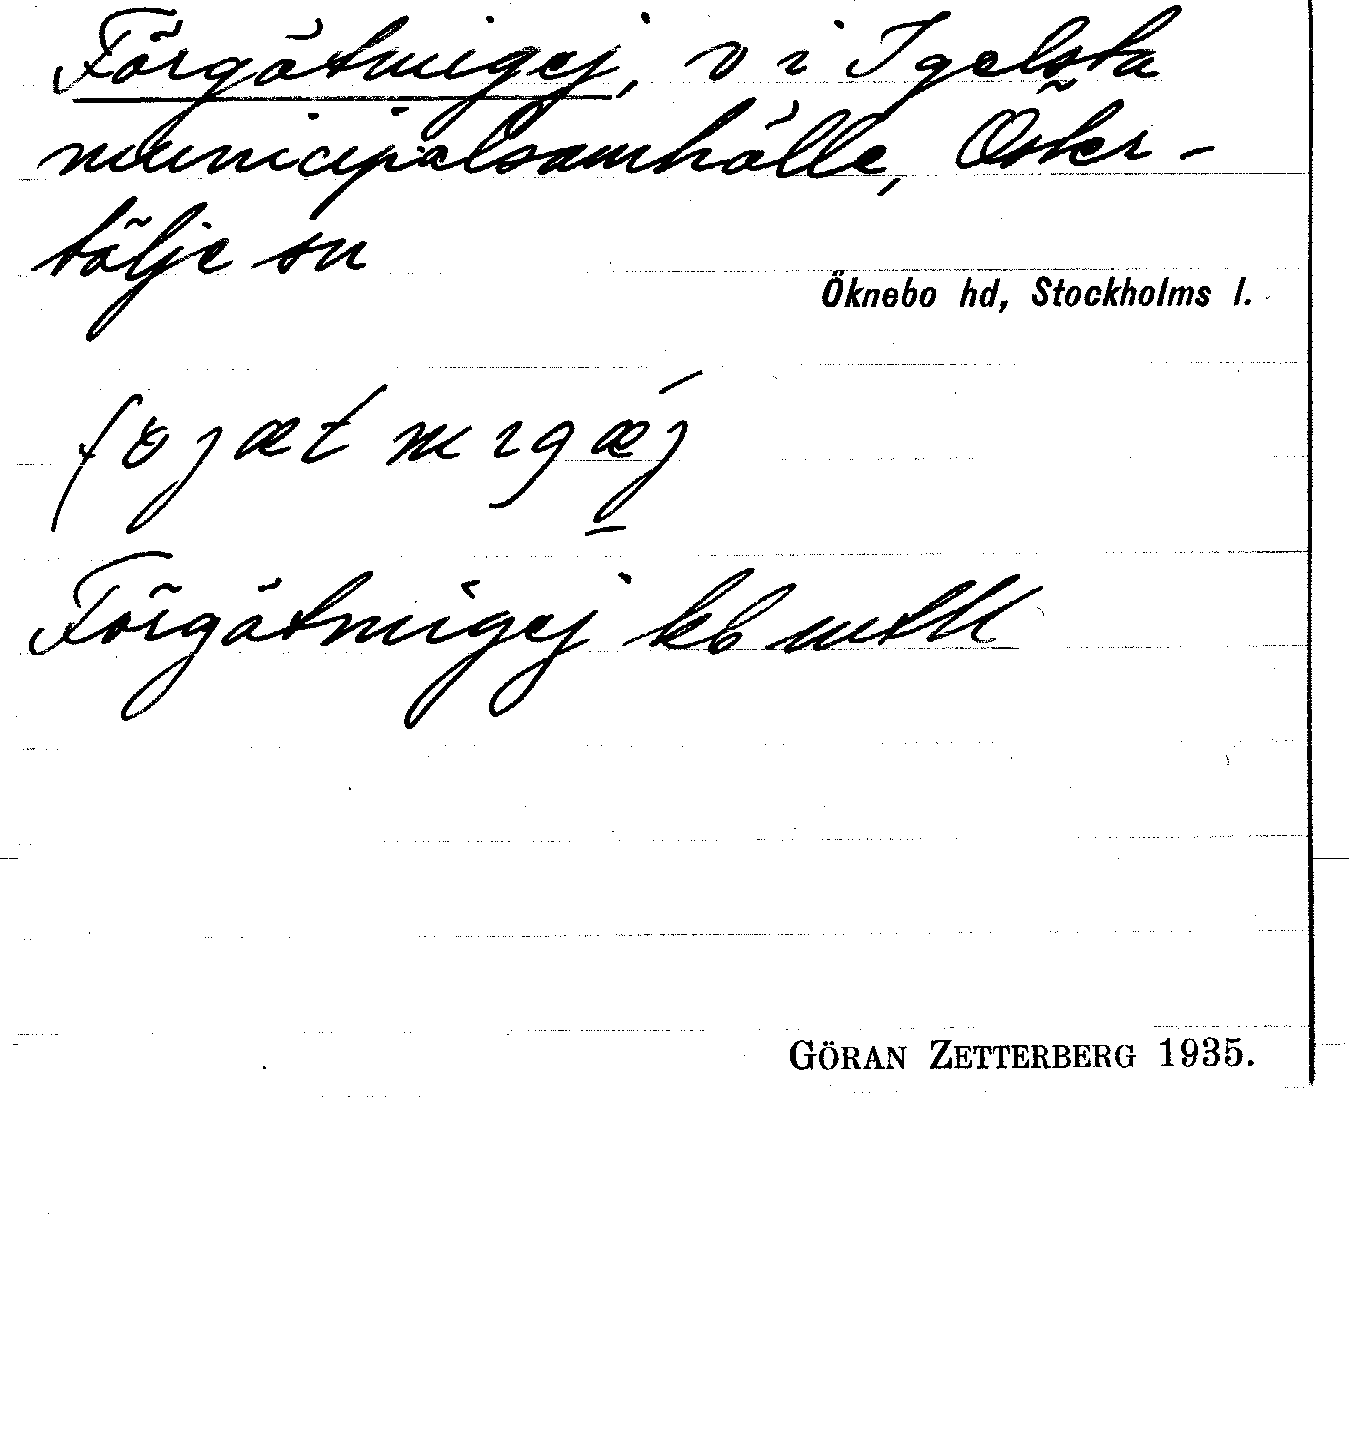 Förgätmigej, v i Igelsta
municipalsamhälle, Öster-
tälje sn
Öknebo hd, Stockholms l.
Förgätmigej kb mtll
GÖRAN ZETTERBERG 1935.